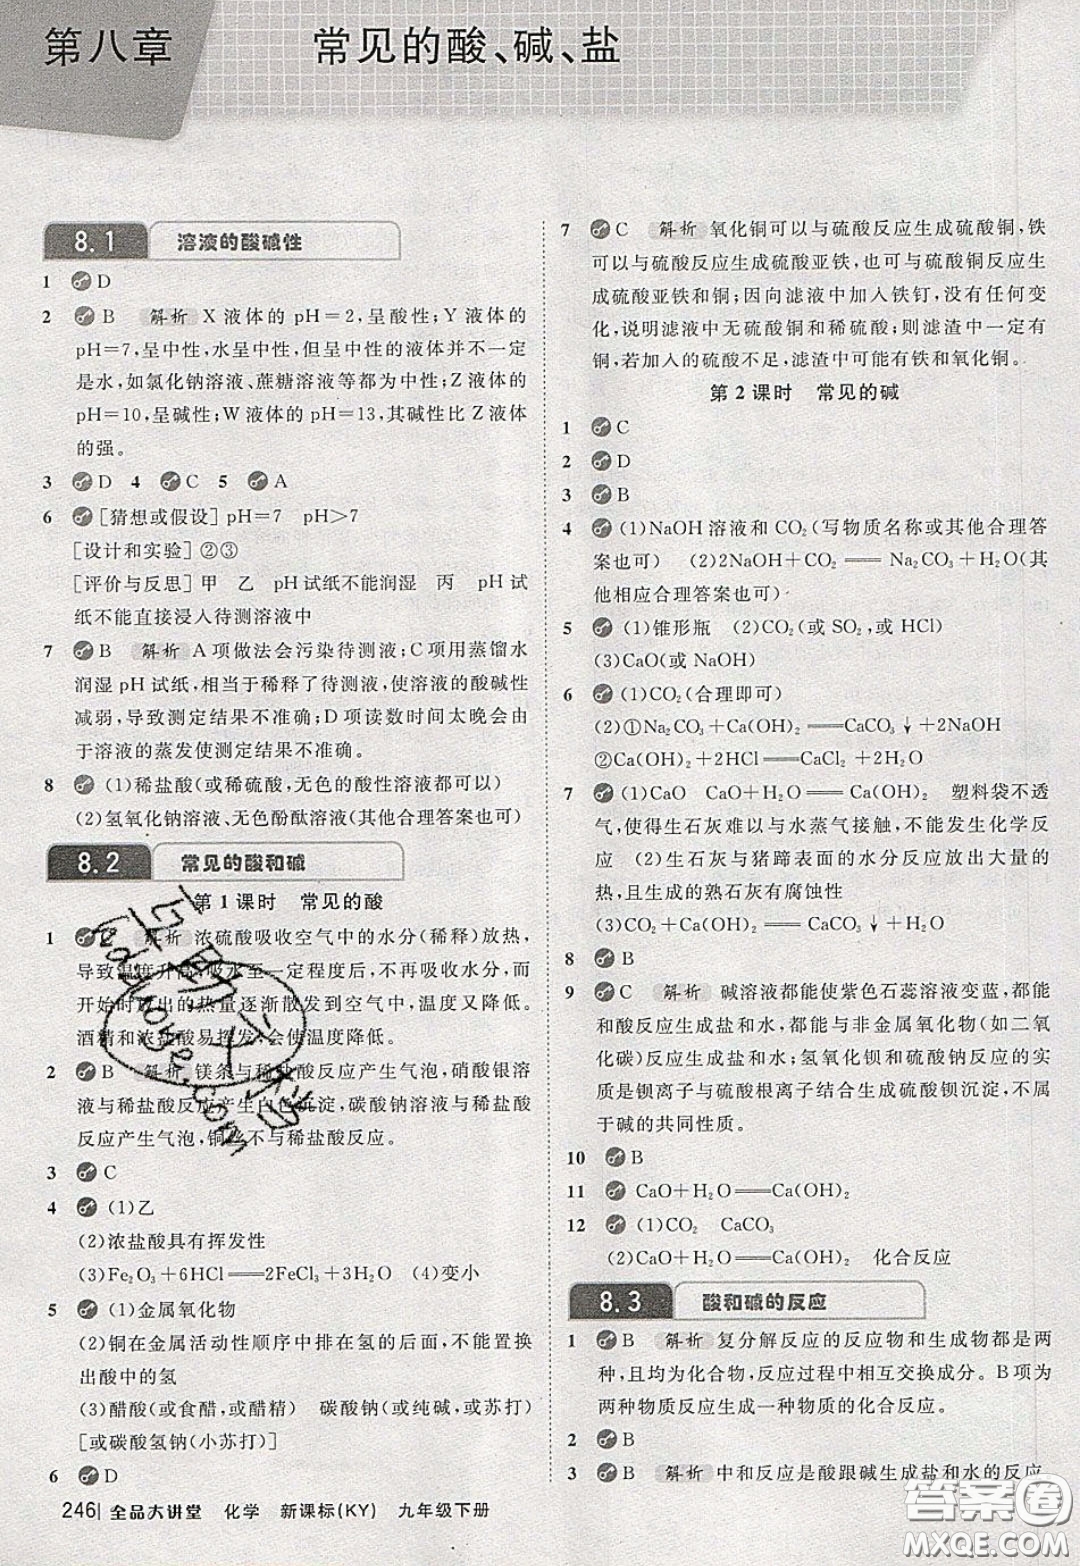 第八章 常见的酸、碱、盐
8.1 溶液的酸碱性
1 D
2 B 解析 X 液体的 pH=2,呈酸性;Y 液体的
pH=7,呈中性,水呈中性,但呈中性的液体并不一定
是水,如氯化钠溶液、蔗糖溶液等都为中性;Z 液体的
pH=10,呈碱性;W 液体的 pH=13,其碱性比 Z 液体
的强。
3 D 4 C 5 A
6 [猜想或假设] pH=7 pH>7
[设计和实验] ②③
[评价与反思] 甲 乙 pH 试纸不能润湿 丙 pH 试
纸不能直接浸入待测溶液中
7 B 解析 A 项做法会污染待测液;C 项用蒸馏水
润湿 pH 试纸,相当于稀释了待测液,使溶液的酸碱性
减弱,导致测定结果不准确;D 项读数时间太晚会由
于溶液的蒸发使测定结果不准确。
8 (1)稀盐酸(或稀硫酸,无色的酸性溶液都可以)
(2)氢氧化钠溶液、无色酚酞溶液(其他合理答案也可)
8.2 常见的酸和碱
第 1 课时 常见的酸
1 解析 浓硫酸吸收空气中的水分(稀释)放热,
导致温度升高,吸水至一定程度后,不再吸收水分,而
开始时放出的热量逐渐散发到空气中,温度又降低。
酒精和浓盐酸易挥发,会使温度降低。
2 B 解析 镁条与稀盐酸反应产生气泡,硝酸银溶
液与稀盐酸反应产生白色沉淀,碳酸钠溶液与稀盐酸
反应产生气泡,铜丝不与稀盐酸反应。
3 C
4 (1)乙
(2)浓盐酸具有挥发性
(3)Fe₂O₃+6HCl══2FeCl₃+3H₂O (4)变小
5 (1)金属氧化物
(2)铜在金属活动性顺序中排在氢的后面,不能置换
出酸中的氢
(3)醋酸(或食醋,或白醋) 碳酸钠(或纯碱,或苏打)
[或碳酸氢钠(小苏打)]
6 D
246 全品大讲堂 化学 新课标(KY) 九年级下册
7 C 解析 氧化铜可以与硫酸反应生成硫酸铜,铁
可以与硫酸反应生成硫酸亚铁,也可与硫酸铜反应生
成硫酸亚铁和铜;因向滤液中加入铁钉,没有任何变
化,说明滤液中无硫酸铜和稀硫酸;则滤渣中一定有
铜,若加入的硫酸不足,滤渣中可能有铁和氧化铜。
第 2 课时 常见的碱
1 C
2 D
3 B
4 (1)NaOH 溶液和 CO₂(写物质名称或其他合理答
案也可) (2)2NaOH+CO₂══Na₂CO₃+H₂O(其
他相应合理答案也可)
5 (1)锥形瓶 (2)CO₂(或 SO₂,或 HCl)
(3)CaO(或 NaOH)
6 (1)CO₂(合理即可)
(2)①Na₂CO₃+Ca(OH)₂══CaCO₃↓+2NaOH
②Ca(OH)₂+2HCl══CaCl₂+2H₂O
7 (1)CaO CaO+H₂O══Ca(OH)₂ 塑料袋不透
气,使得生石灰难以与水蒸气接触,不能发生化学反
应 (2)生石灰与猪蹄表面的水分反应放出大量的
热,且生成的熟石灰有腐蚀性
(3)CO₂+Ca(OH)₂══CaCO₃↓+H₂O
8 B
9 C 解析 碱溶液都能使紫色石蕊溶液变蓝,都能
和酸反应生成盐和水,都能与非金属氧化物(如二氧
化碳)反应生成盐和水;氢氧化钡和硫酸钠反应的实
质是钡离子与硫酸根离子结合生成硫酸钡沉淀,不属
于碱的共同性质。
10 B
11 CaO+H₂O══Ca(OH)₂
12 (1)CO₂ CaCO₃
(2)CaO+H₂O══Ca(OH)₂ 化合反应
8.3 酸和碱的反应
1 B 解析 复分解反应的反应物和生成物都是两
种,且均为化合物,反应过程中相互交换成分。B 项为
两种物质反应生成一种物质的化合反应。
2 B
3 B 解析 中和反应是酸跟碱生成盐和水的反应,
答案圈
MXQE.COM